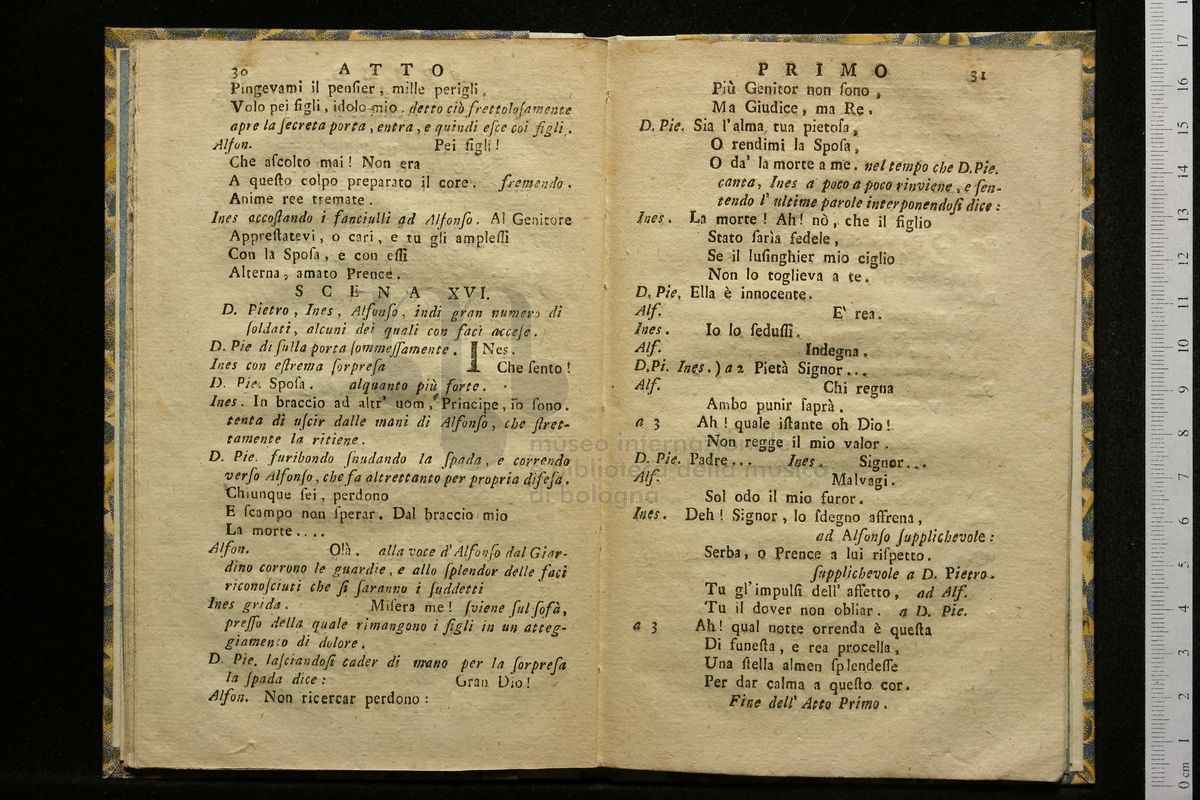 30 ATTO
Pingevami il penſier, mille perigli,
Volo pei figli, idolo mio. detto ciò frettoloſamente
apre la ſecreta porta, entra, e quindi eſce coi figli.
Alfon. Pei figli!
Che aſcolto mai! Non era
A queſto colpo preparato il core. fremendo.
Anime ree tremate.
Ines accoſtando i fanciulli ad Alfonſo. Al Genitore
Appreſtatevi, o cari, e tu gli ampleſſi
Con la Spoſa, e con eſſi
Alterna, amato Prence.
SCENA XVI.
D. Pietro, Ines, Alfonſo, indi gran numero di
ſoldati, alcuni dei quali con faci acceſe.
D. Pie di ſulla porta ſommeſſamente. INes.
Ines con eſtrema ſorpreſa Che ſento!
D. Pie. Spoſa. alquanto più forte.
Ines. In braccio ad altr' uom, Principe, io ſono.
tenta di uſcir dalle mani di Alfonſo, che ſtret-
tamente la ritiene.
D. Pie. furibondo ſnudando la ſpada, e correndo
verſo Alfonſo, che fa altrettanto per propria difeſa.
Chiunque ſei, perdono
E ſcampo non ſperar. Dal braccio mio
La morte....
Alfon. Olà. alla voce d'Alfonſo dal Giar-
dino corrono le guardie, e allo ſplendor delle faci
riconoſciuti che ſi ſaranno i ſuddetti
Ines grida. Miſera me! ſviene ſul ſofà,
preſſo della quale rimangono i figli in un atteg-
giamento di dolore.
D. Pie. laſciandoſi cader di mano per la ſorpreſa
la ſpada dice: Gran Dio!
Alfon. Non ricercar perdono:
PRIMO 31
Più Genitor non ſono,
Ma Giudice, ma Re.
D. Pie. Sia l'alma tua pietoſa,
O rendimi la Spoſa,
O da' la morte a me. nel tempo che D.Pie.
canta, Ines a poco a poco rinviene, e ſen-
tendo l' ultime parole interponendoſi dice:
Ines. La morte! Ah! nò, che il figlio
Stato ſarìa fedele,
Se il luſinghier mio ciglio
Non lo toglieva a te.
D. Pie. Ella è innocente.
Alf. E' rea.
Ines. Io lo ſeduſſi.
Alf. Indegna.
D.Pi. Ines.) a 2 Pietà Signor...
Alf. Chi regna
Ambo punir ſaprà.
a 3 Ah! quale iſtante oh Dio!
Non regge il mio valor.
D. Pie. Padre... Ines. Signor...
Alf. Malvagi.
Sol odo il mio furor.
Ines. Deh! Signor, lo ſdegno affrena,
ad Alfonſo ſupplichevole:
Serba, o Prence a lui riſpetto.
ſupplichevole a D. Pietro.
Tu gl'impulſi dell' affetto, ad Alf.
Tu il dover non obliar. a D. Pie.
a 3 Ah! qual notte orrenda è queſta
Di funeſta, e rea procella,
Una ſtella almen ſplendeſſe
Per dar calma a queſto cor.
Fine dell' Atto Primo.
museo internazionale
e biblioteca della musica
di bologna
0 cm 1 2 3 4 5 6 7 8 9 10 11 12 13 14 15 16 17